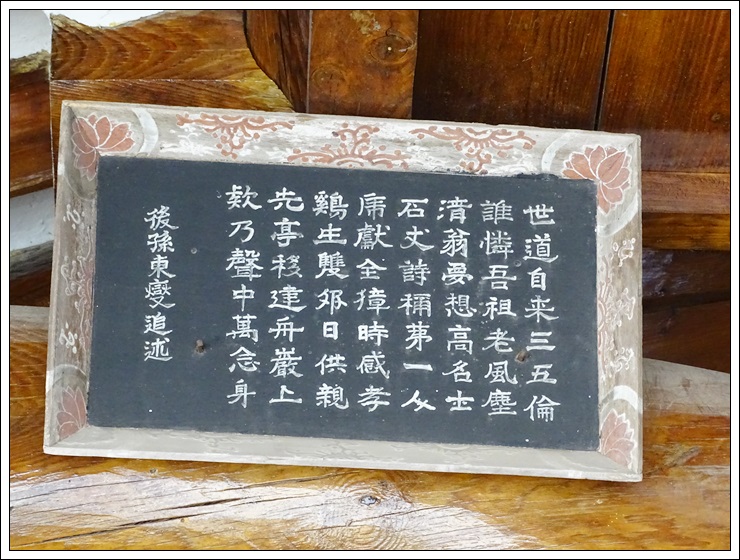 世道自来三五倫
誰憐吾祖老風塵
清翁夢想高名士
石丈詩稱第一人
虎獻全獐時感孝
鷄生雙卵日供親
先亭移建舟巖上
欸乃聲中萬念身
後孫東燮追述